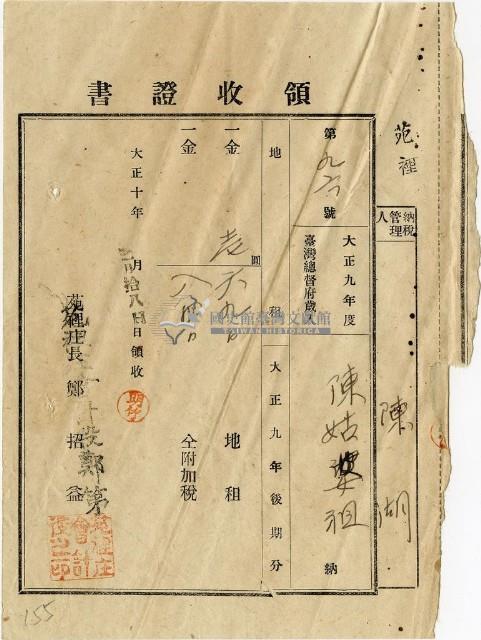 領收證書
苑裡
納稅管理人
陳 湖
第九六號
大正九年度
臺灣總督府歲入
陳姑婆祖 納
地租
大正九年後期分
一金 圓 地租
一金 仝附加稅
大正十年 月拾八日領收
苑裡庄長 鄭招益
國史館臺灣文獻館
TAIWAN HISTORICA
155